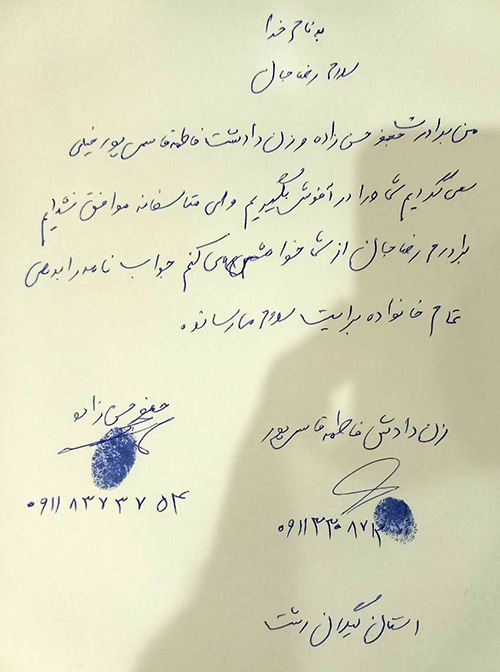 به نام خدا
سلام رضا جان
من برادرت جعفر حسن زاده و زن دادشت فاطمه قاسمی پور خیلی
سعی کردیم شما را در آغوش بگیریم ولی متاسفانه موافق نشدیم
برادرم رضا جان از شما خواهش می کنم جواب نامه را بدهی
تمام خانواده برایت سلام می رسانند
جعفر حسن زاده
زن دادش فاطمه قاسمی پور
۰۹۱۱۸۳۷۳۷۵۴
استان گیلان رشت